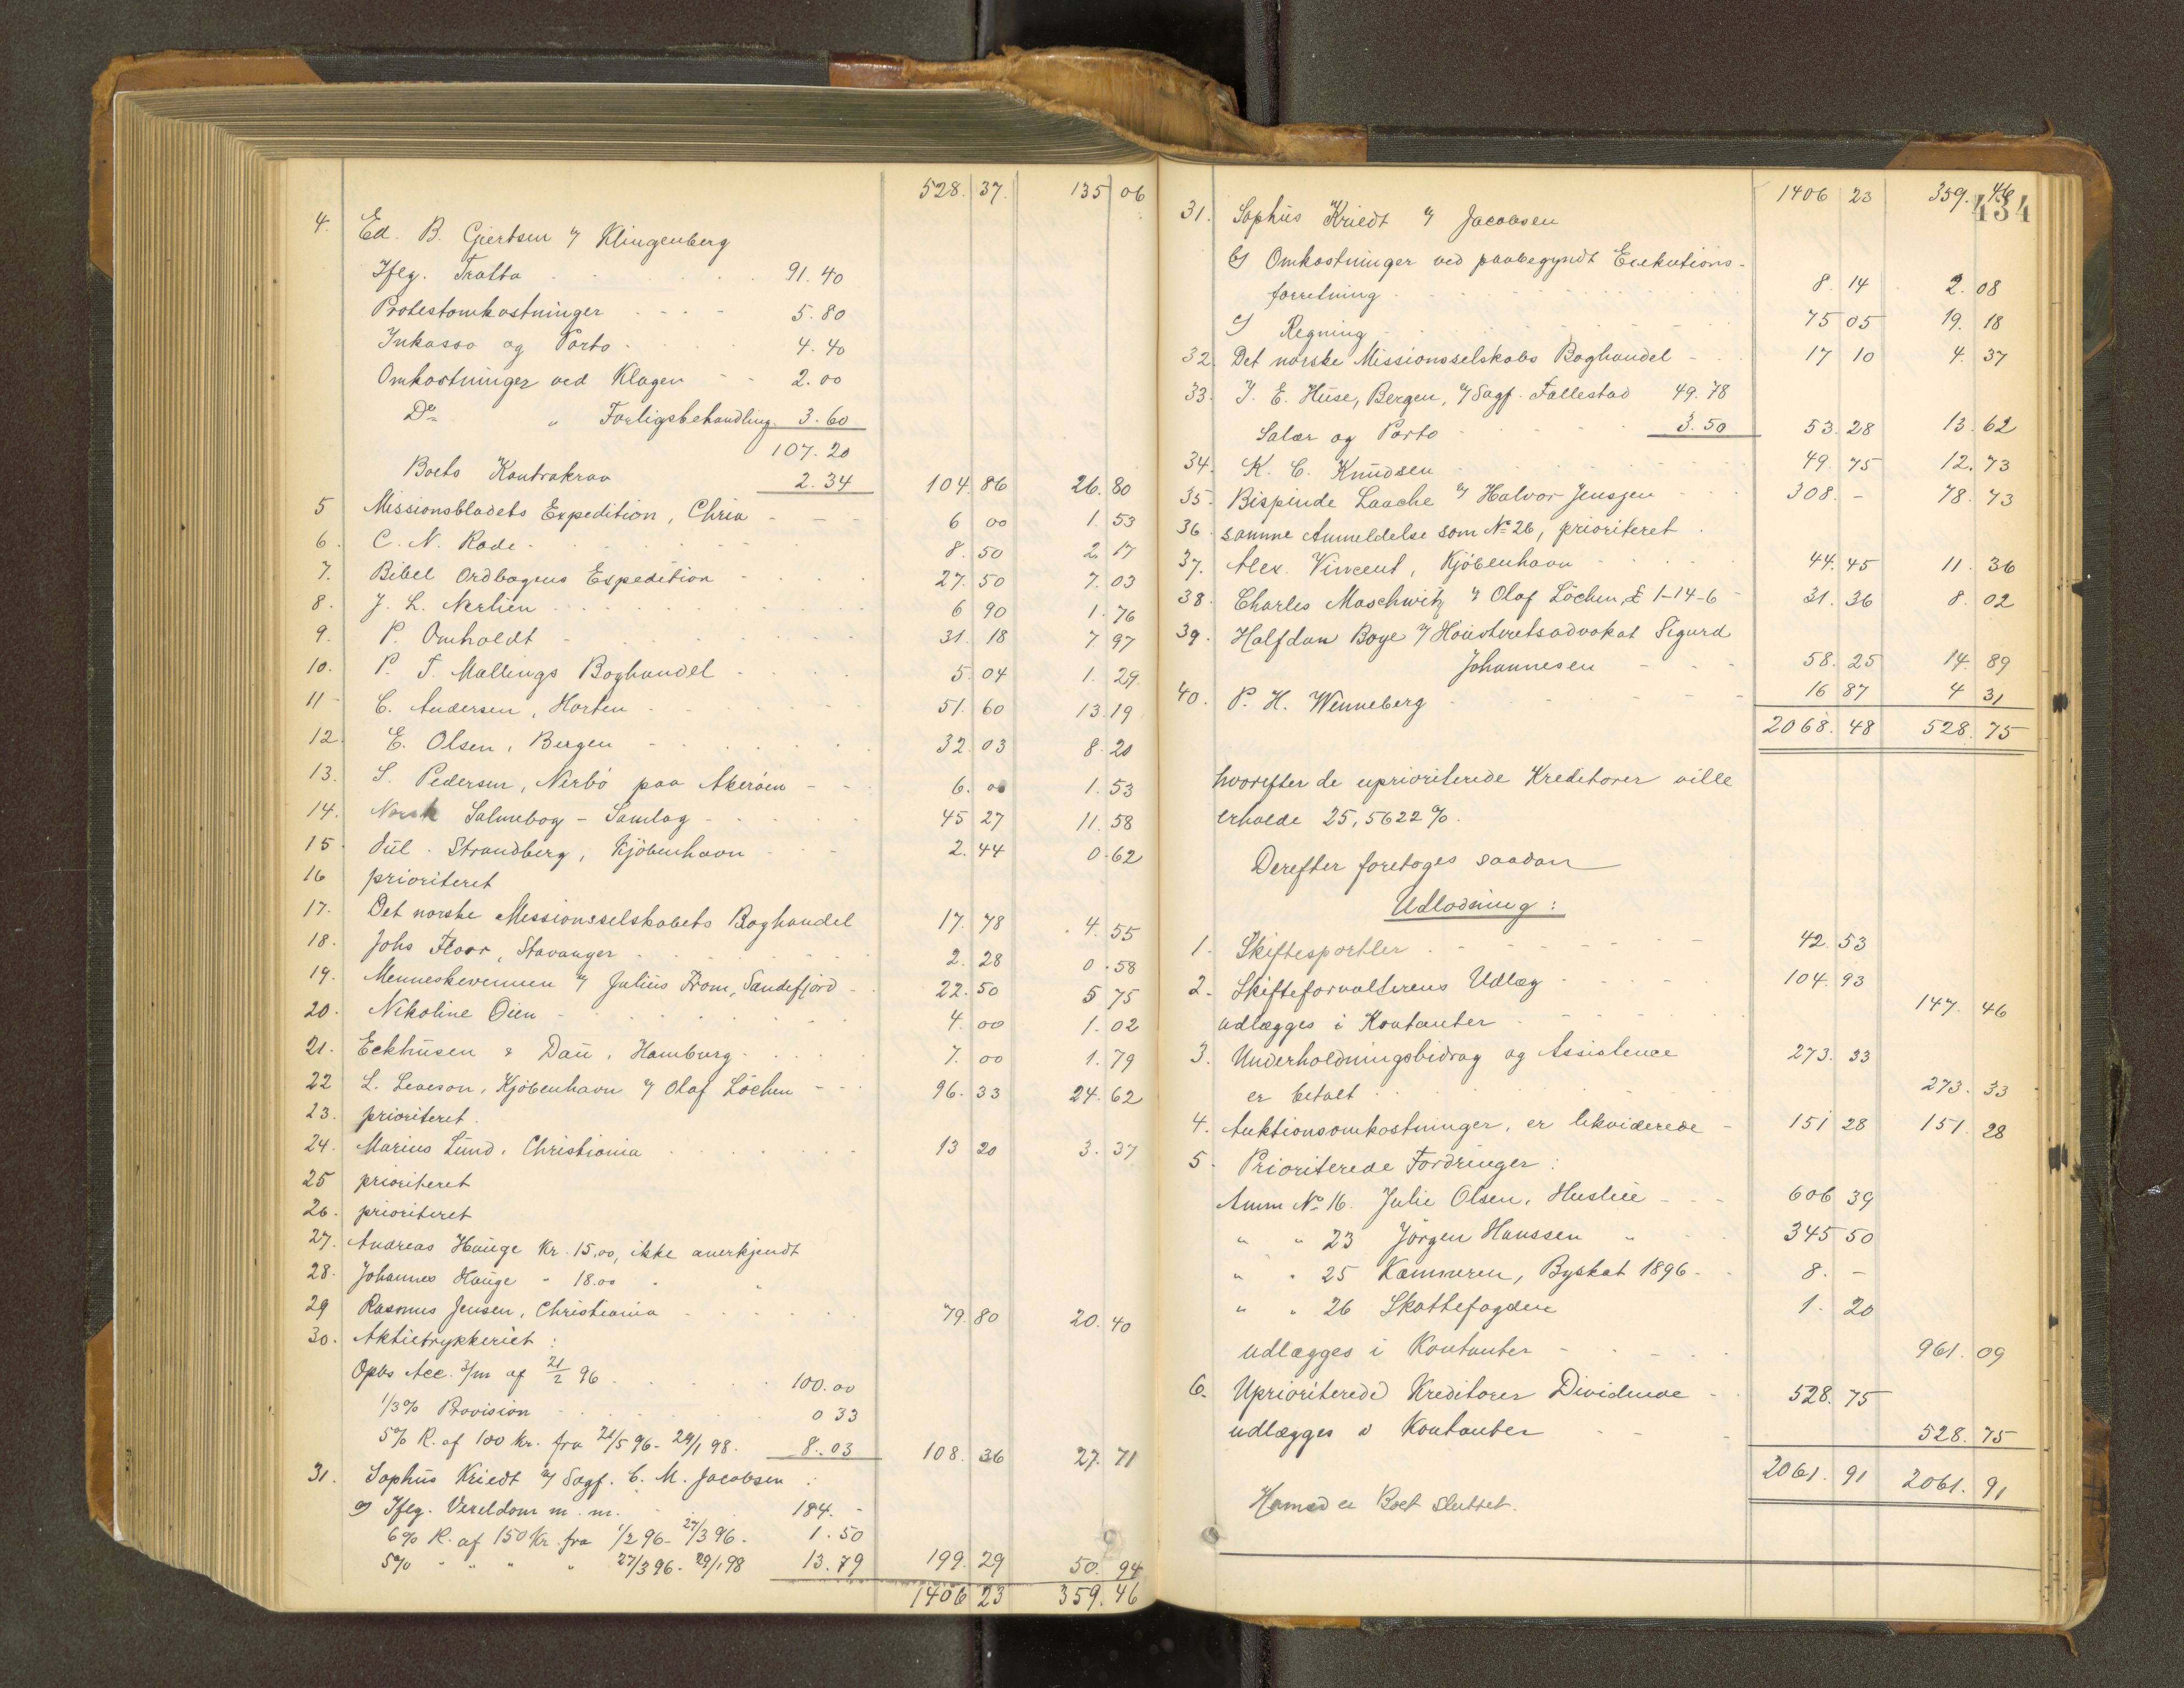 528. 37. 135 06
4. Ed. B. Gjertsen v/ Klingenberg
Iflg. Tratta 91.40
Protestomkostninger 5.80
Inkasso og Porto 4.40
Omkostninger ved Klagen 2.00
Do " Forligsbehandling 3.60
107.20
Boets Kontrakrav 2.34 104. 86 26. 80
5 Missionsbladets Expedition, Chria 6 00 1. 53
6. C. N. Rode 8. 50 2. 17
7. Bibel Ordbogens Expedition 27. 50 7. 03
8. J. L. Nerlien 6 90 1. 76
9. P. Omholdt 31. 18 7. 97
10. P. T. Mallings Boghandel 5. 04 1. 29
11 C. Andersen, Horten 51. 60 13. 19
12. E. Olsen, Bergen 32. 03 8. 20
13. S. Pedersen, Nerbö paa Akeröen 6. 00 1. 53
14. Norsk Salmebog - Samlag 45 27 11. 58
15 Jul. Strandberg, Kjöbenhavn 2. 44 0. 62
16 prioriteret
17. Det norske Missionsselskabets Boghandel 17. 78 4. 55
18. Johs Floor, Stavanger 2. 28 0. 58
19. Menneskevennen v/ Julius From, Sandefjord 22. 50 5 75
20. Nikoline Öien 4. 00 1. 02
21. Eckhusen & Dau, Hamburg 7. 00 1. 79
22 L. Leveson, Kjöbenhavn v/ Olaf Löchen 96. 33 24. 62
23. prioriteret.
24. Marius Lund, Christiania 13 20 3. 37
25 prioriteret
26. prioriteret
27. Andreas Hauge Kr. 15,00, ikke anerkjendt
28. Johannes Hauge " 18.00 " "
29 Rasmus Jensen, Christiania 79. 80 20. 40
30. Aktietrykkeriet:
Opbs Acc. 3/m af 21/2 96 100.00
1/3% Provision 0 33
5% R. af 100 Kr. fra 21/5 96 - 29/1 98. 8.03 108. 36 27. 71
31. Sophus Kriedt v/ Sagf. C. M. Jacobsen:
a) Iflg. Vexeldom m. m. 184.-
6% R. af 150 Kr. fra 1/2 96 - 27/3 96. 1.50
5% " " " " 27/3 96 - 29/1 98 13.79 199. 29 50. 94
1406 23 359. 46
434
1406 23 359. 46
31. Sophus Kriedt v/ Jacobsen
b) Omkostninger ved paabegyndt Exekutions-
forretning 8. 14 2. 08
c) Regning 75 05 19. 18
32. Det norske Missionsselskabs Boghandel 17 10 4. 37
33. J. E. Huse, Bergen, v/ Sagf. Fallestad 49.78
Salær og Porto 3.50 53. 28 13. 62
34. K. C. Knudsen 49. 75 12. 73
35. Bispinde Laache v/ Halvor Jensen 308. - 78. 73
36. samme Anmeldelse som No 26, prioriteret
37. Alex. Vincent, Kjöbenhavn 44. 45 11. 36
38. Charles Maschwitz v/ Olaf Löchen, £ 1-14-6 31. 36 8. 02
39. Halfdan Boye v/ Höiesteretsadvokat Sigurd
Johannesen 58. 25 14. 89
40. P. H. Wenneberg 16 87 4 31
2068. 48 528. 75
hvorefter de uprioriterede Kreditorer ville
erholde 25,5622 %.
Derefter foretages saadan
Udlodning:
1. Skiftesportler 42. 53
2. Skifteforvalterens Udlæg 104. 93
udlægges i Kontanter 147. 46
3. Underholdningsbidrag og Assistence 273. 33
er betalt 273. 33
4. Auktionsomkostninger, er likviderede 151 28 151. 28
5. Prioriterede Fordringer:
Anm No 16. Julie Olsen, Husleie 606 39
" " 23 Jörgen Hanssen " 345 50
" " 25 Kæmneren, Byskat 1896 8. -
" " 26 Skattefogden 1. 20
udlægges i Kontanter 961. 09
6. Uprioriterede Kreditorer Dividende 528. 75
udlægges i Kontanter 528. 75
2061. 91 2061. 91
Hermed er Boet sluttet.